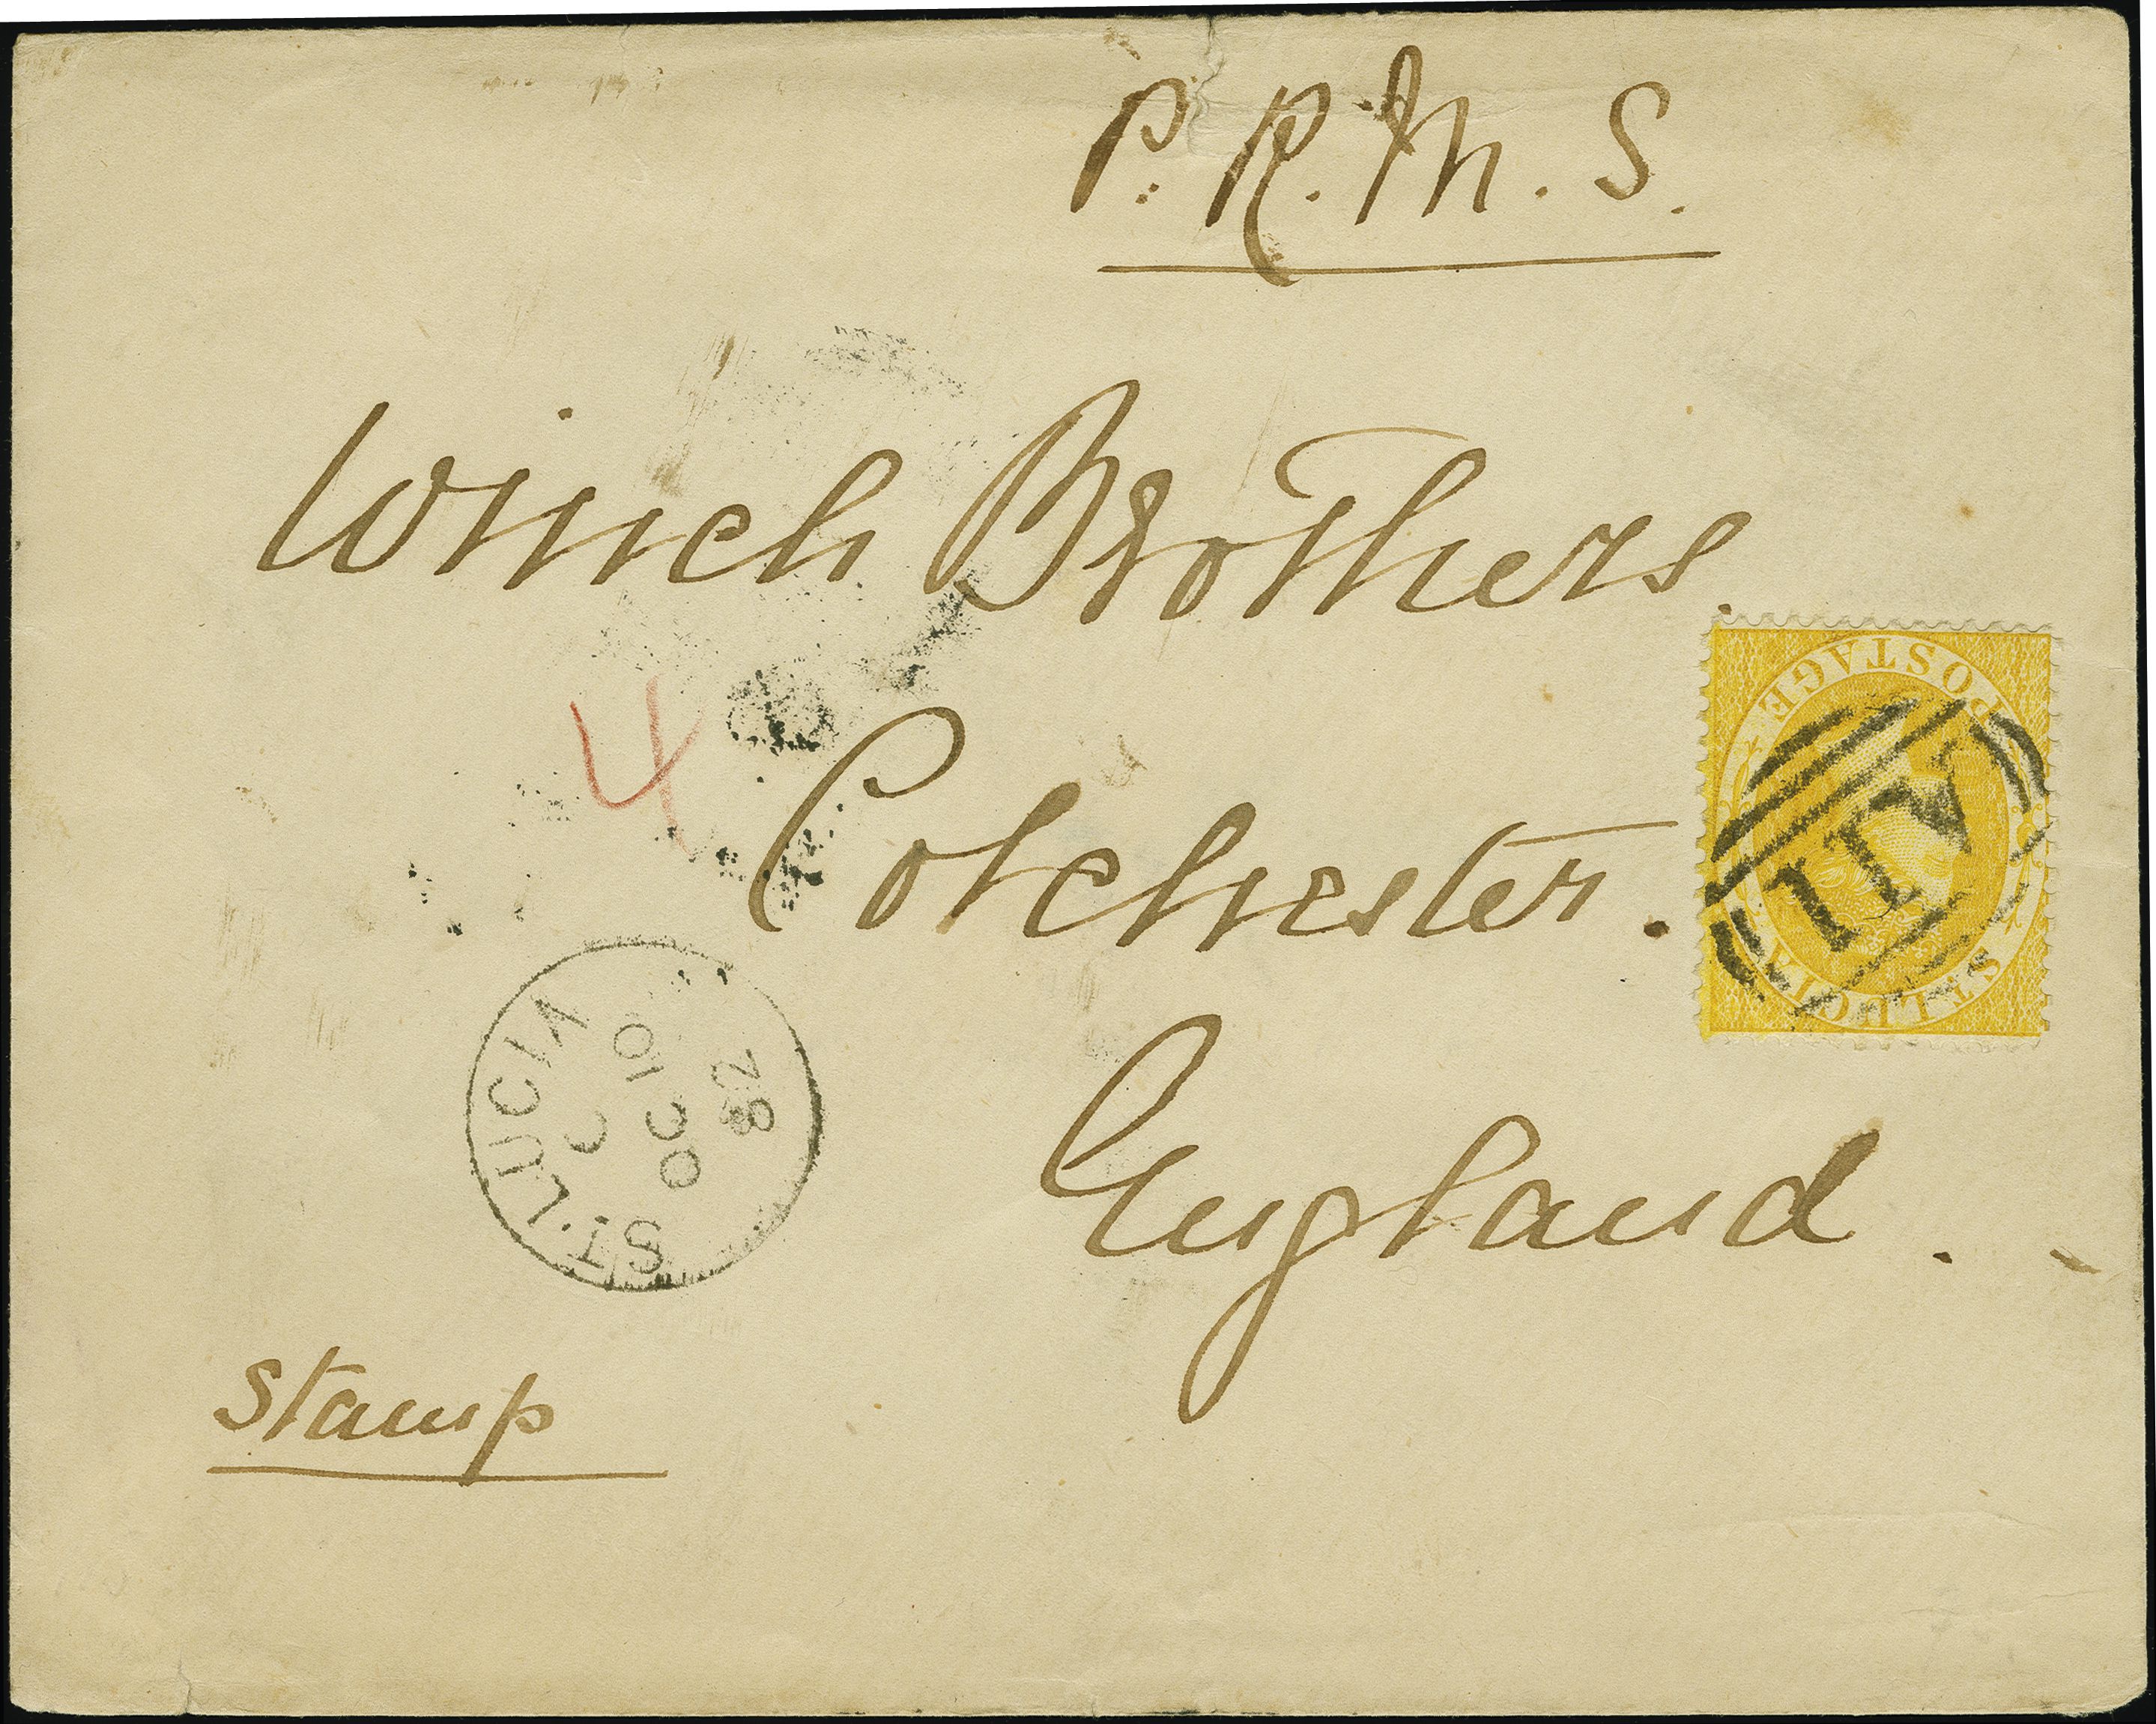 P. R. M. S.
Winch Brothers.
POSTAGE
4
Colchester.
A11
ST. LUCIA
ST. LUCIA
C
10
OC
82
England.
Stamp